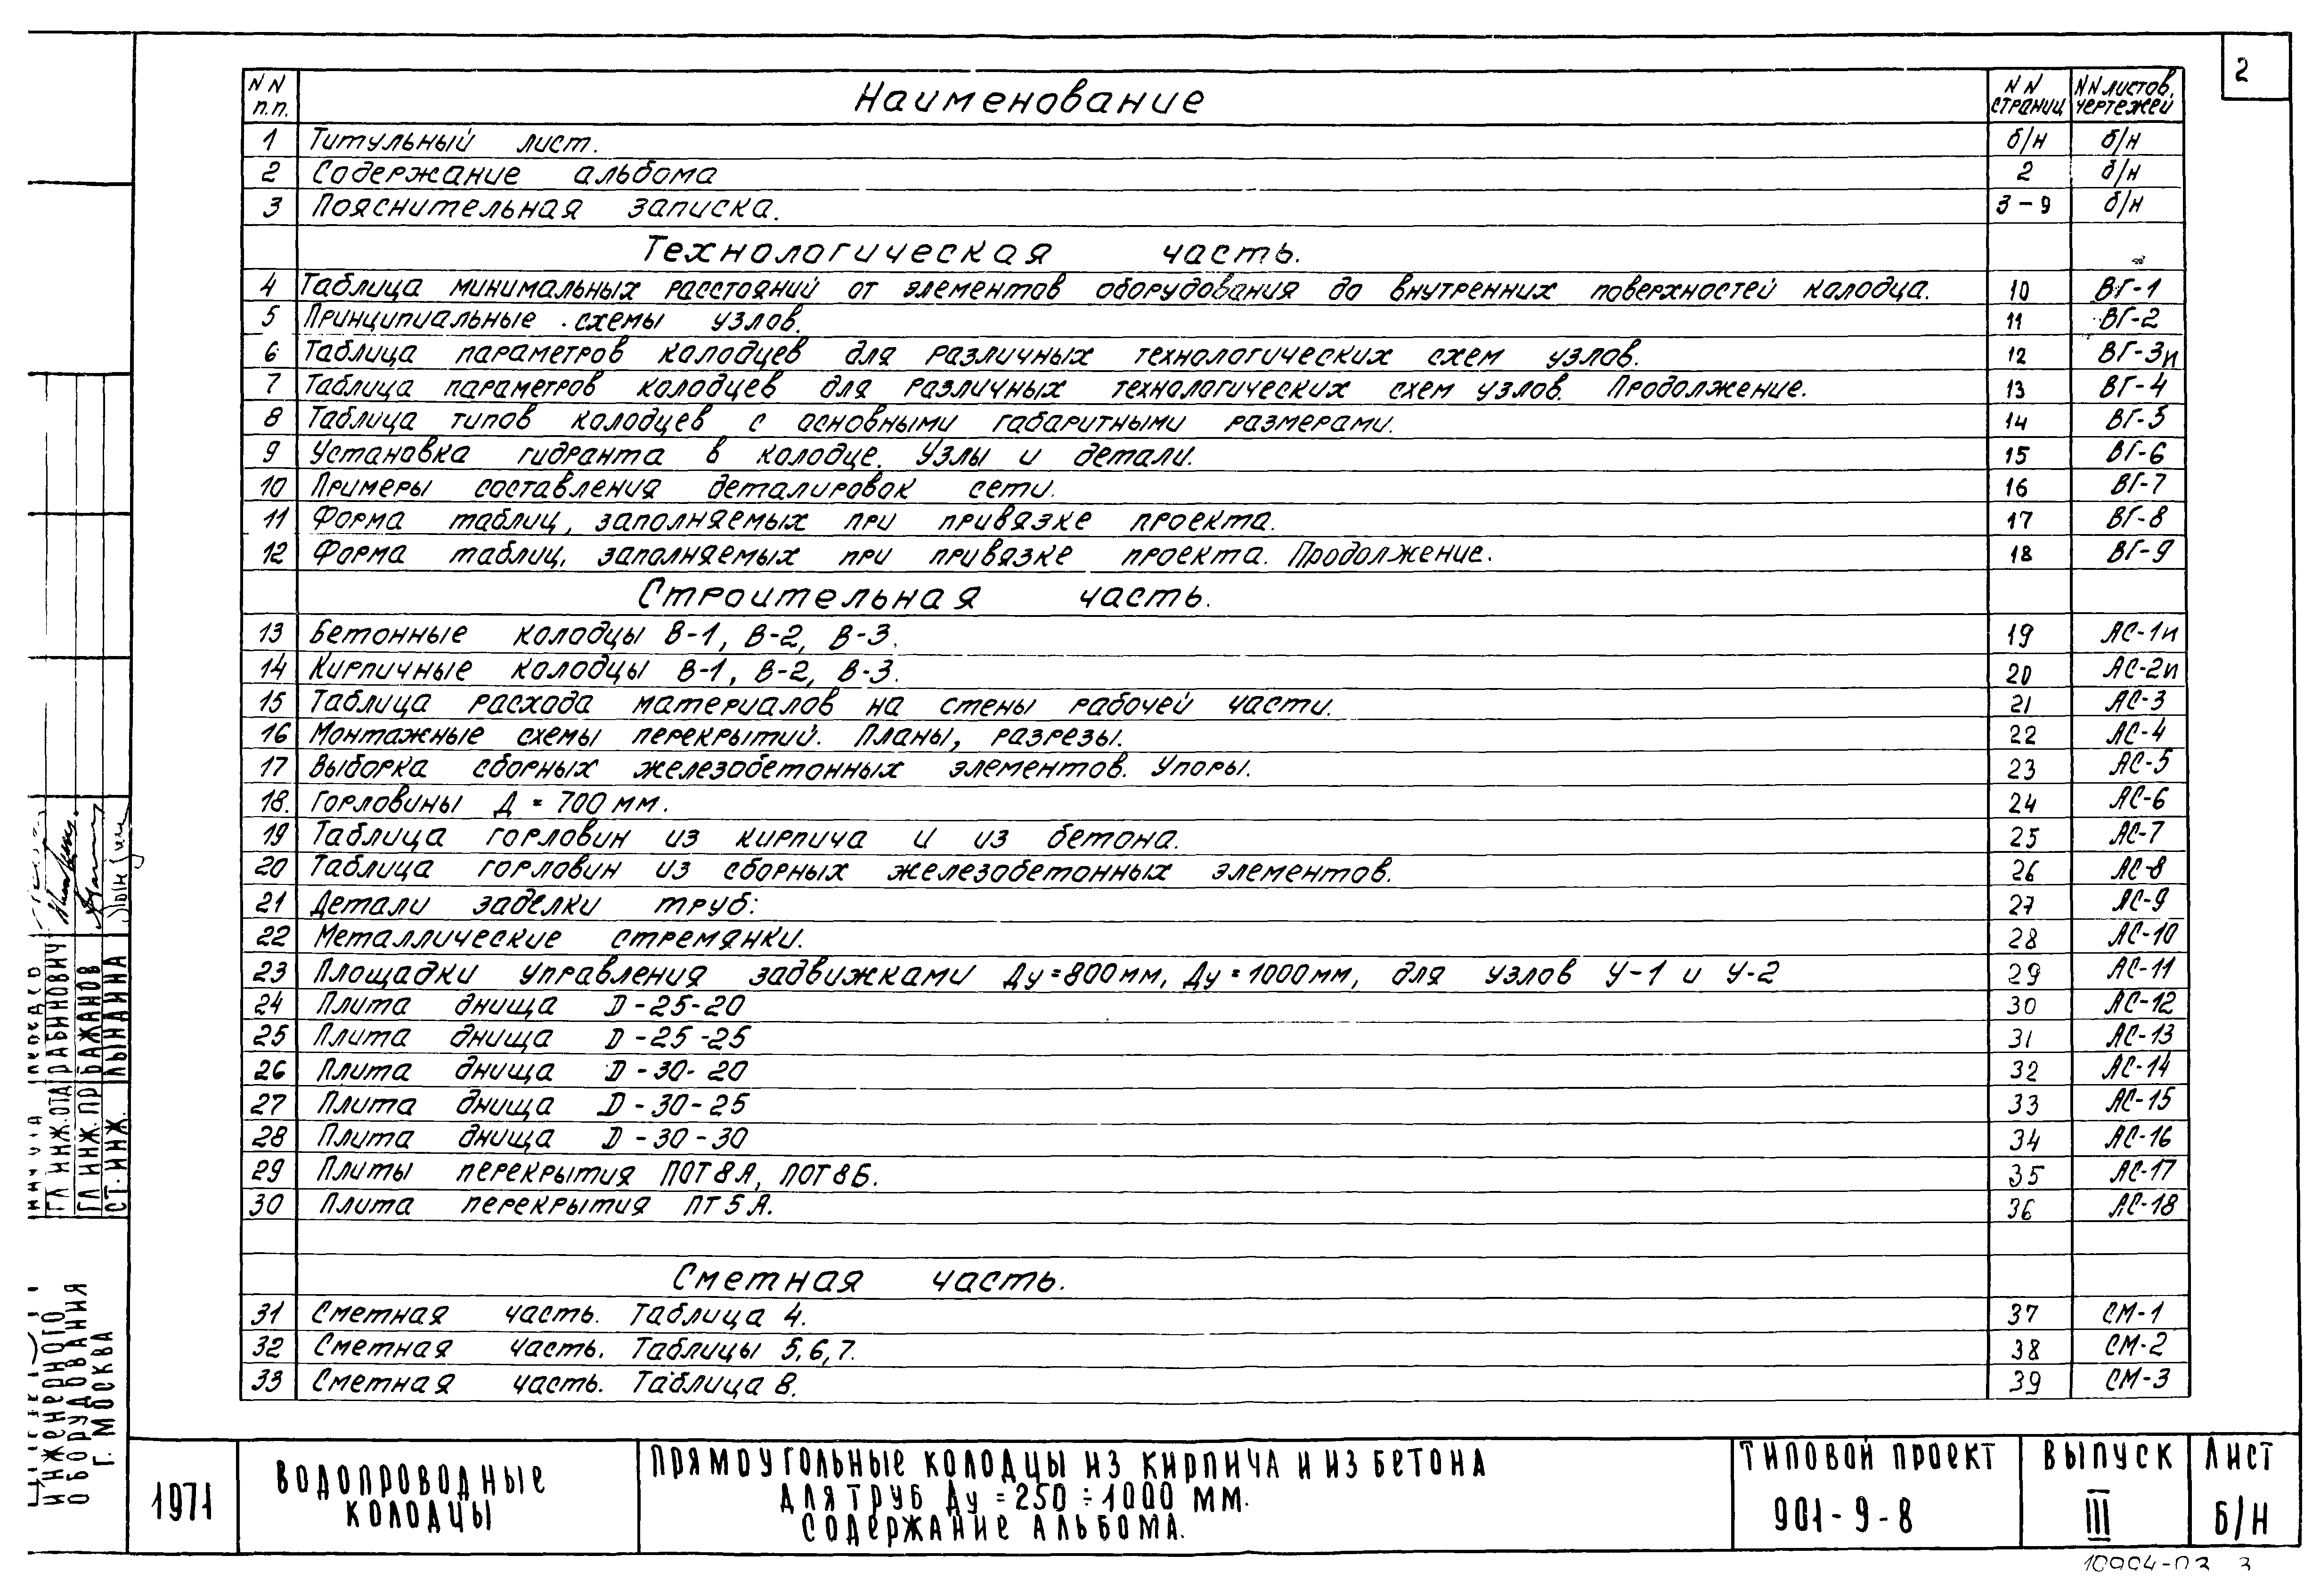 2
NN п.п. Наименование NN страниц NN листов, чертежей
1 Титульный лист. б/н б/н
2 Содержание альбома 2 б/н
3 Пояснительная записка. 3-9 б/н
Технологическая часть.
4 Таблица минимальных расстояний от элементов оборудования до внутренних поверхностей колодца. 10 ВГ-1
5 Принципиальные схемы узлов. 11 ВГ-2
6 Таблица параметров колодцев для различных технологических схем узлов. 12 ВГ-3и
7 Таблица параметров колодцев для различных технологических схем узлов. Продолжение. 13 ВГ-4
8 Таблица типов колодцев с основными габаритными размерами. 14 ВГ-5
9 Установка гидранта в колодце. Узлы и детали. 15 ВГ-6
10 Примеры составления деталировок сети. 16 ВГ-7
11 Форма таблиц, заполняемых при привязке проекта. 17 ВГ-8
12 Форма таблиц, заполняемых при привязке проекта. Продолжение. 18 ВГ-9
Строительная часть.
13 Бетонные колодцы В-1, В-2, В-3. 19 АС-1и
14 Кирпичные колодцы В-1, В-2, В-3. 20 АС-2и
15 Таблица расхода материалов на стены рабочей части. 21 АС-3
16 Монтажные схемы перекрытий. Планы, разрезы. 22 АС-4
17 Выборка сборных железобетонных элементов. Упоры. 23 АС-5
18. Горловины Д = 700 мм. 24 АС-6
19 Таблица горловин из кирпича и из бетона. 25 АС-7
20 Таблица горловин из сборных железобетонных элементов. 26 АС-8
21 Детали заделки труб: 27 АС-9
22 Металлические стремянки. 28 АС-10
23 Площадки управления задвижками Ду=800мм, Ду=1000мм, для узлов У-1 и У-2 29 АС-11
24 Плита днища D-25-20 30 АС-12
25 Плита днища D-25-25 31 АС-13
26 Плита днища D-30-20 32 АС-14
27 Плита днища D-30-25 33 АС-15
28 Плита днища D-30-30 34 АС-16
29 Плиты перекрытия ПОТ8А, ПОТ8Б. 35 АС-17
30 Плита перекрытия ПТ5А. 36 АС-18
Сметная часть.
31 Сметная часть. Таблица 4. 37 СМ-1
32 Сметная часть. Таблицы 5,6,7. 38 СМ-2
33 Сметная часть. Таблица 8. 39 СМ-3
ГЛ ИНЖ.ОТД РАБИНОВИЧ
ГЛ ИНЖ.ПР БАЖАНОВ
СТ. ИНЖ. ЛЫНДИНА
ИНЖЕНЕРНОГО
ОБОРУДОВАНИЯ
Г. МОСКВА
1971
ВОДОПРОВОДНЫЕ
КОЛОДЦЫ
ПРЯМОУГОЛЬНЫЕ КОЛОДЦЫ ИЗ КИРПИЧА И ИЗ БЕТОНА
ДЛЯ ТРУБ Ду = 250 ÷ 1000 ММ.
СОДЕРЖАНИЕ АЛЬБОМА.
ТИПОВОЙ ПРОЕКТ
901-9-8
ВЫПУСК
III
ЛИСТ
Б/Н
10904-03 3